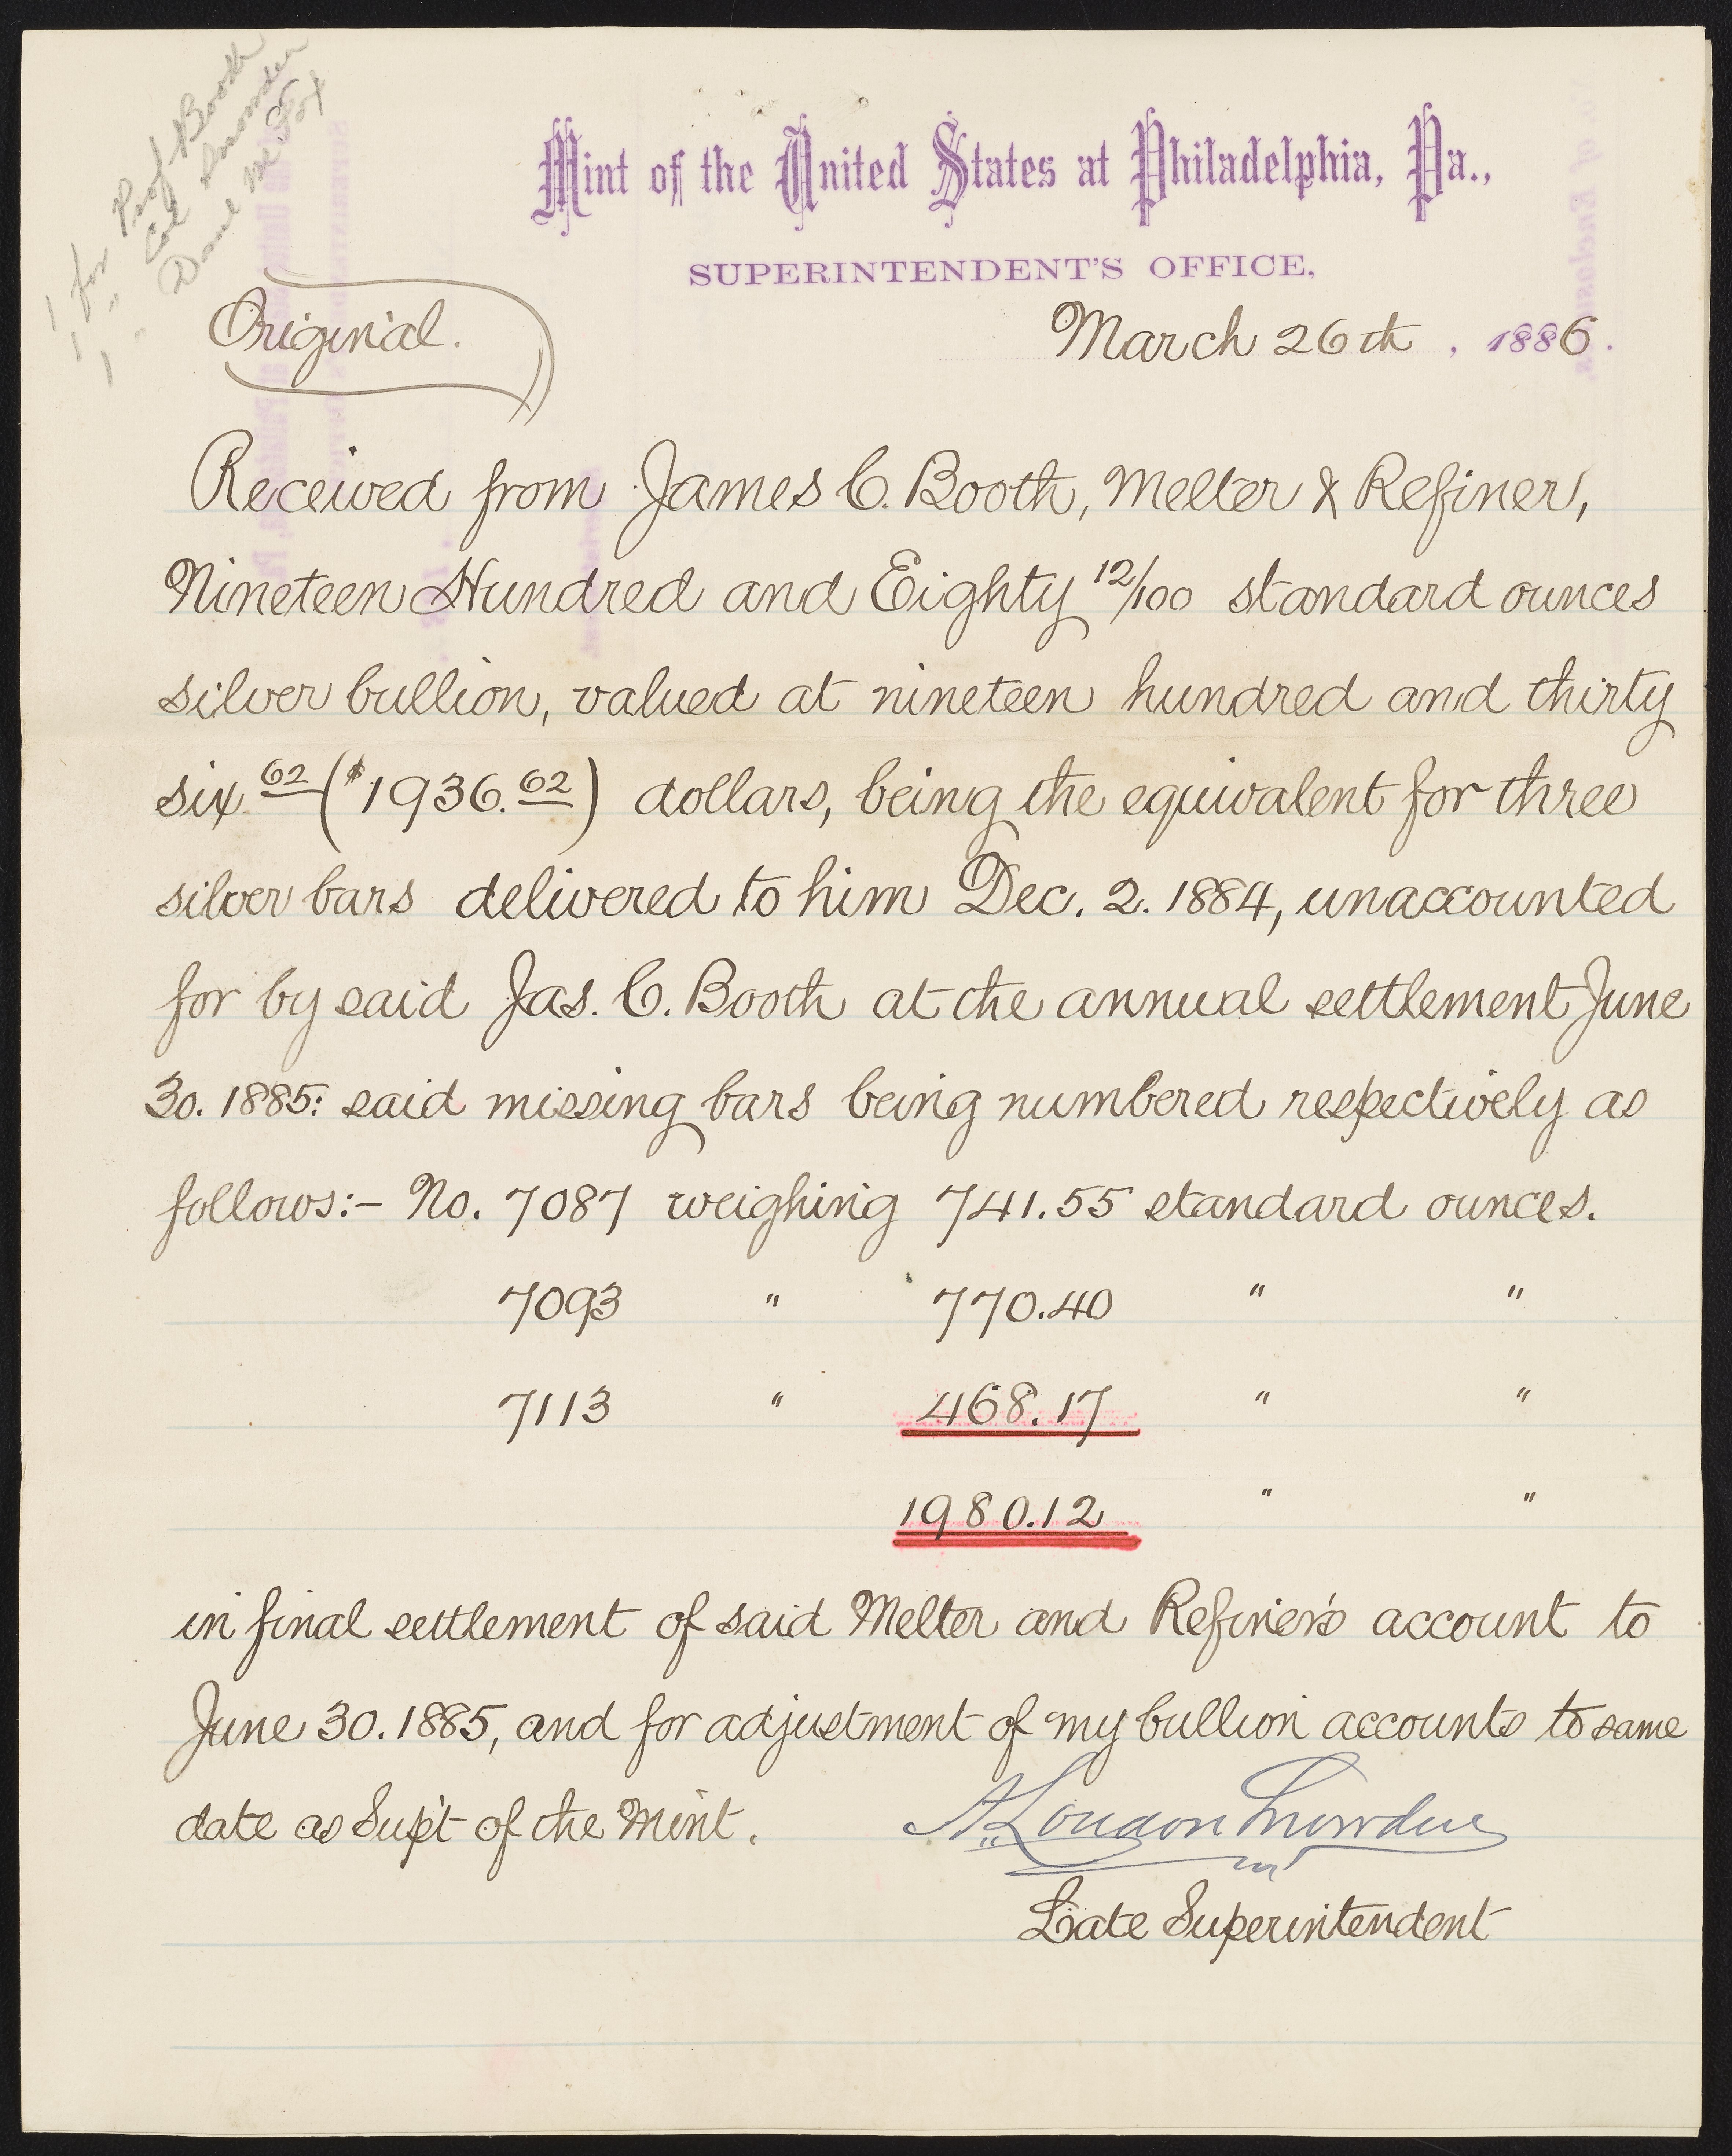 1 for Prof Booth
1 " Col Snowden
1 " Danl M Fox
Mint of the United States at Philadelphia, Pa.,
SUPERINTENDENT'S OFFICE,
Original.
March 26th, 1886.
Received from James C. Booth, Melter & Refiner,
Nineteen Hundred and Eighty 12/100 standard ounces
silver bullion, valued at nineteen hundred and thirty
six 62 ($1936.62) dollars, being the equivalent for three
silver bars delivered to him Dec. 2. 1884, unaccounted
for by said Jas. C. Booth at the annual settlement June
30. 1885: said missing bars being numbered respectively as
follows:- No. 7087 weighing 741.55 standard ounces.
7093 " 770.40 " "
7113 " 468.17 " "
1980.12 " "
in final settlement of said Melter and Refiner's account to
June 30. 1885, and for adjustment of my bullion accounts to same
date as Supt of the Mint.
A. Loudon Snowden
Late Superintendent